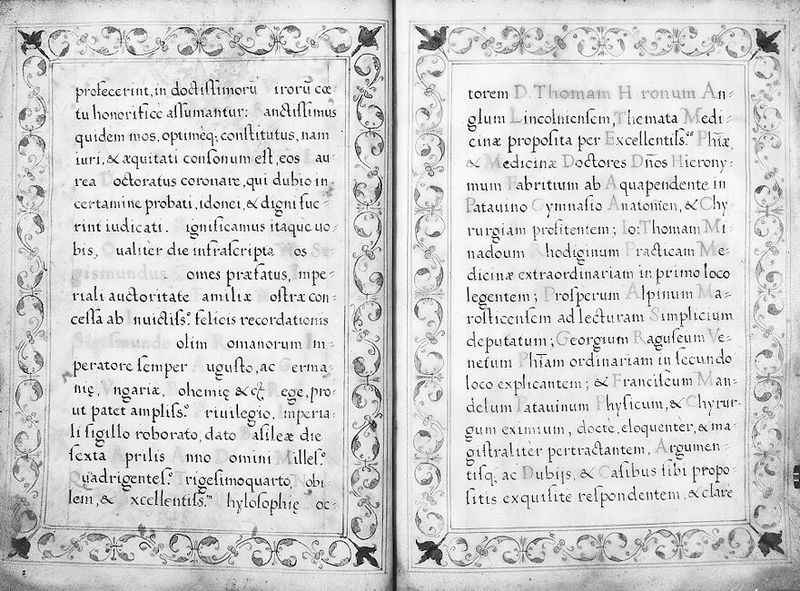 profecerint, in doctissimorū irorū cœ-
tu honorificè assumantur: Sanctissimus
quidem mos, optimeq; constitutus, nam
iuri, & æquitati consonum est, eos Lau-
rea Doctoratus coronare, qui dubio in-
certamine probati, idonei, & digni fue-
rint iudicati. Significamus itaque uo-
bis, Qualiter die infrascripta Nos Se-
gismundus omes præfatus, impe-
riali auctoritate Familiæ Nostræ con-
cessa ab Inuictiss.º felicis recordationis
Sigismundo olim Romanorum Im-
peratore semper Augusto, ac Germa-
nię, Vngariæ, Bohemię & c͞t. Rege, pro-
ut patet ampliss.º Priuilegio, Imperia-
li sigillo roborato, dato Basileæ die
sexta Aprilis Anno Domini Milles.º
Quadrigentes.º Trigesimoquarto, Nobi
lem, & Excellentiss.ᵐ Phylosophię Doc-
torem D. Thomam H ronum An-
glum Lincolniensem, Themata Medi-
cinæ proposita per Excellentiss.ºˢ Phiæ,
& Medicinæ Doctores Dños Hierony-
mum Fabritium ab Aquapendente in
Patauino Gymnasio Anatomen, & Chy-
rurgiam profitentem; Io: Thomam Mi-
nadoum Rhodiginum Practicam Me-
dicinæ extraordinariam in primo loco
legentem; Prosperum Alpinum Ma-
rosticensem ad lecturam Simplicium
deputatum; Georgium Raguseum Ve-
netum Phiam ordinariam in secundo
loco explicantem; & Franciscum Man-
delum Patauinum Physicum, & Chyrur-
gum eximium, docte, eloquenter, & ma-
gistraliter pertractantem, Argumen-
tisq; ac Dubijs, & Casibus sibi propo-
sitis exquisite respondentem, & clarè